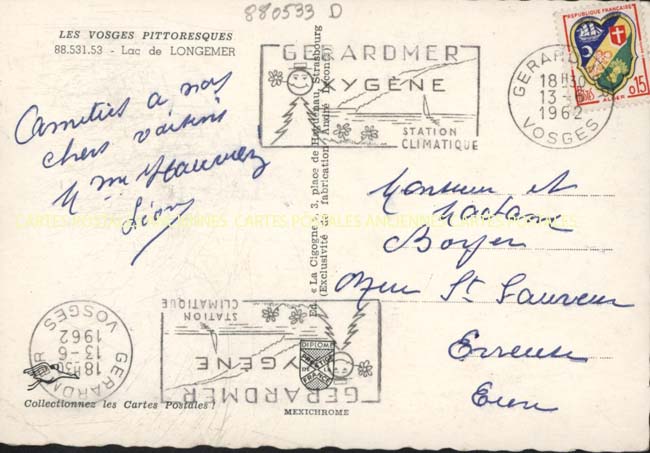 880533 D
LES VOSGES PITTORESQUES
88.531.53 - Lac de LONGEMER
Amitiés a nos
chers voisins
Mme
Léon
CARTES POSTALES ANCIENNES CARTES POSTALES ANCIENNES CARTES POSTALES
GERARDMER
OXYGÈNE
STATION
CLIMATIQUE
GERARDMER
18H30
13-6
1962
VOSGES
REPUBLIQUE FRANÇAISE
POSTES
0,15
ALGER
Ed. « La Cigogne », 3, place de Haguenau, Strasbourg
(Exclusivité de fabrication André Leconte)
Monsieur et
Madame
Boyer
Rue St Sauveur
Evreux
Eure
STATION
CLIMATIQUE
OXYGÈNE
GERARDMER
GERARDMER
18H30
13-6
1962
VOSGES
DIPLOME
PRESTIGE
FRANCE
Collectionnez les Cartes Postales !
MEXICHROME